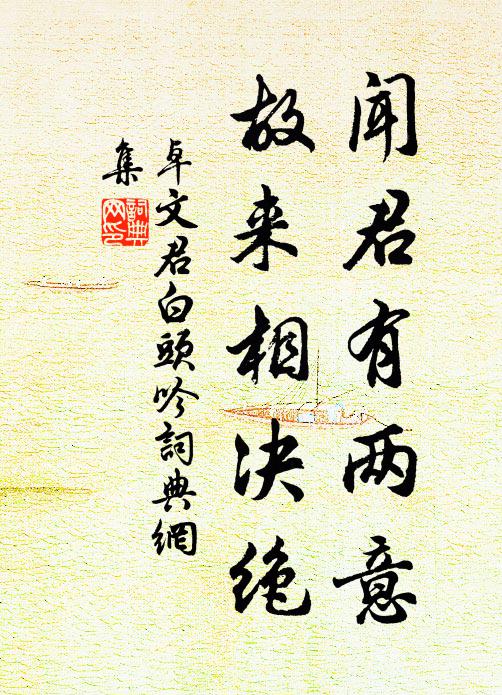 闻君有两意
故来相决绝
卓文君白頭吟詞典網
集
詞典
网印